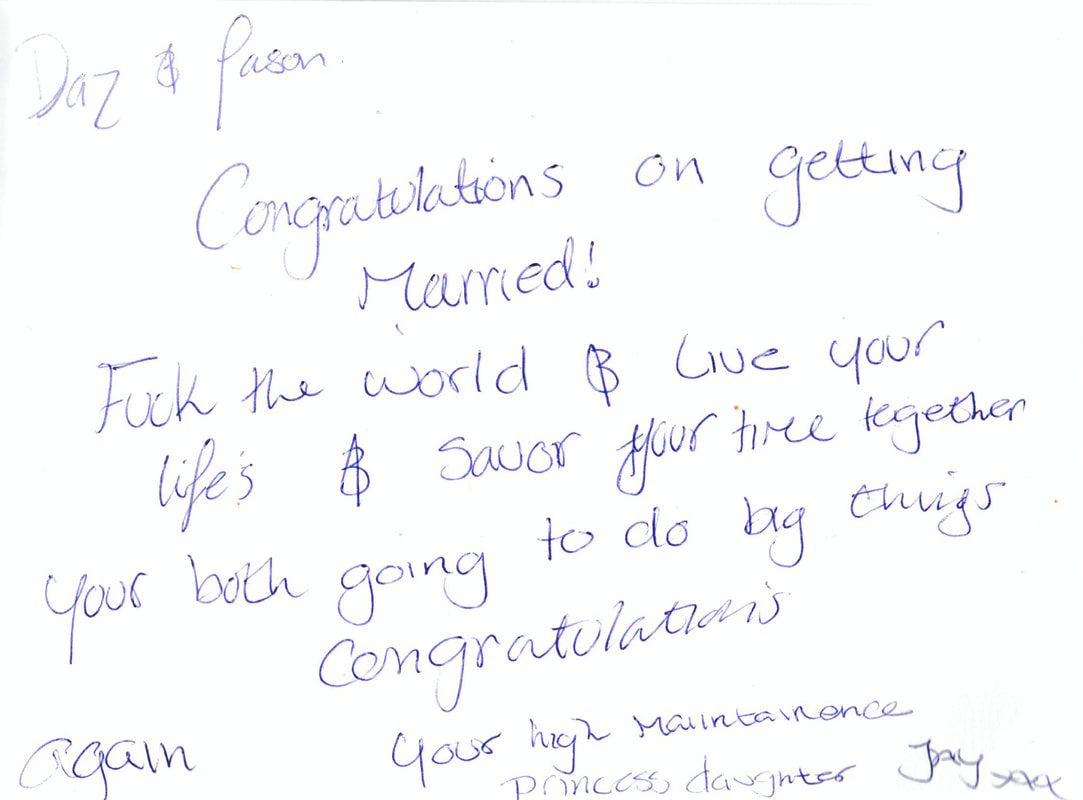 Daz & Jason.
Congratulations on getting
Married!
Fuck the world & Live your
life's & Savor your time together
your both going to do big things
Congratulations
again
Your high Maintainence
princess daughter Jay xxx